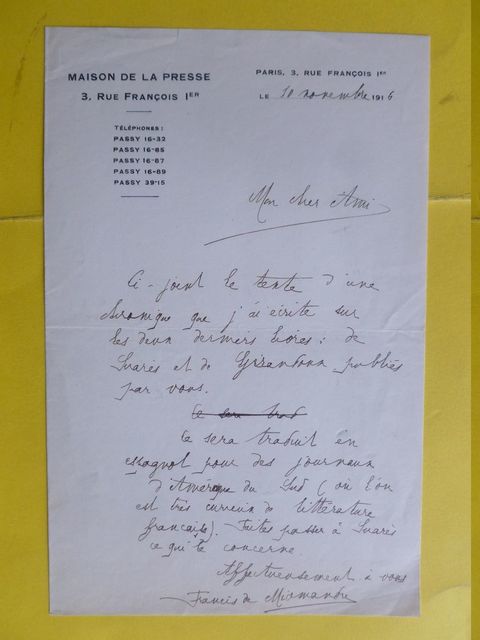 MAISON DE LA PRESSE
3, RUE FRANÇOIS IER
TÉLÉPHONES :
PASSY 16-32
PASSY 16-85
PASSY 16-87
PASSY 16-89
PASSY 39-15
PARIS, 3, RUE FRANÇOIS IER
LE 10 novembre 1916
Mon cher Ami
Ci-joint le texte d'une
chronique que j'ai écrite sur
les deux derniers livres : de
Suarès et de Giraudoux publiés
par vous.
Ce sera trad
Ce sera traduit en
espagnol pour des journaux
d'Amérique du Sud (où l'on
est très curieux de littérature
française). Faites passer à Suarès
ce qui le concerne.
Affectueusement à vous
Francis de Miomandre